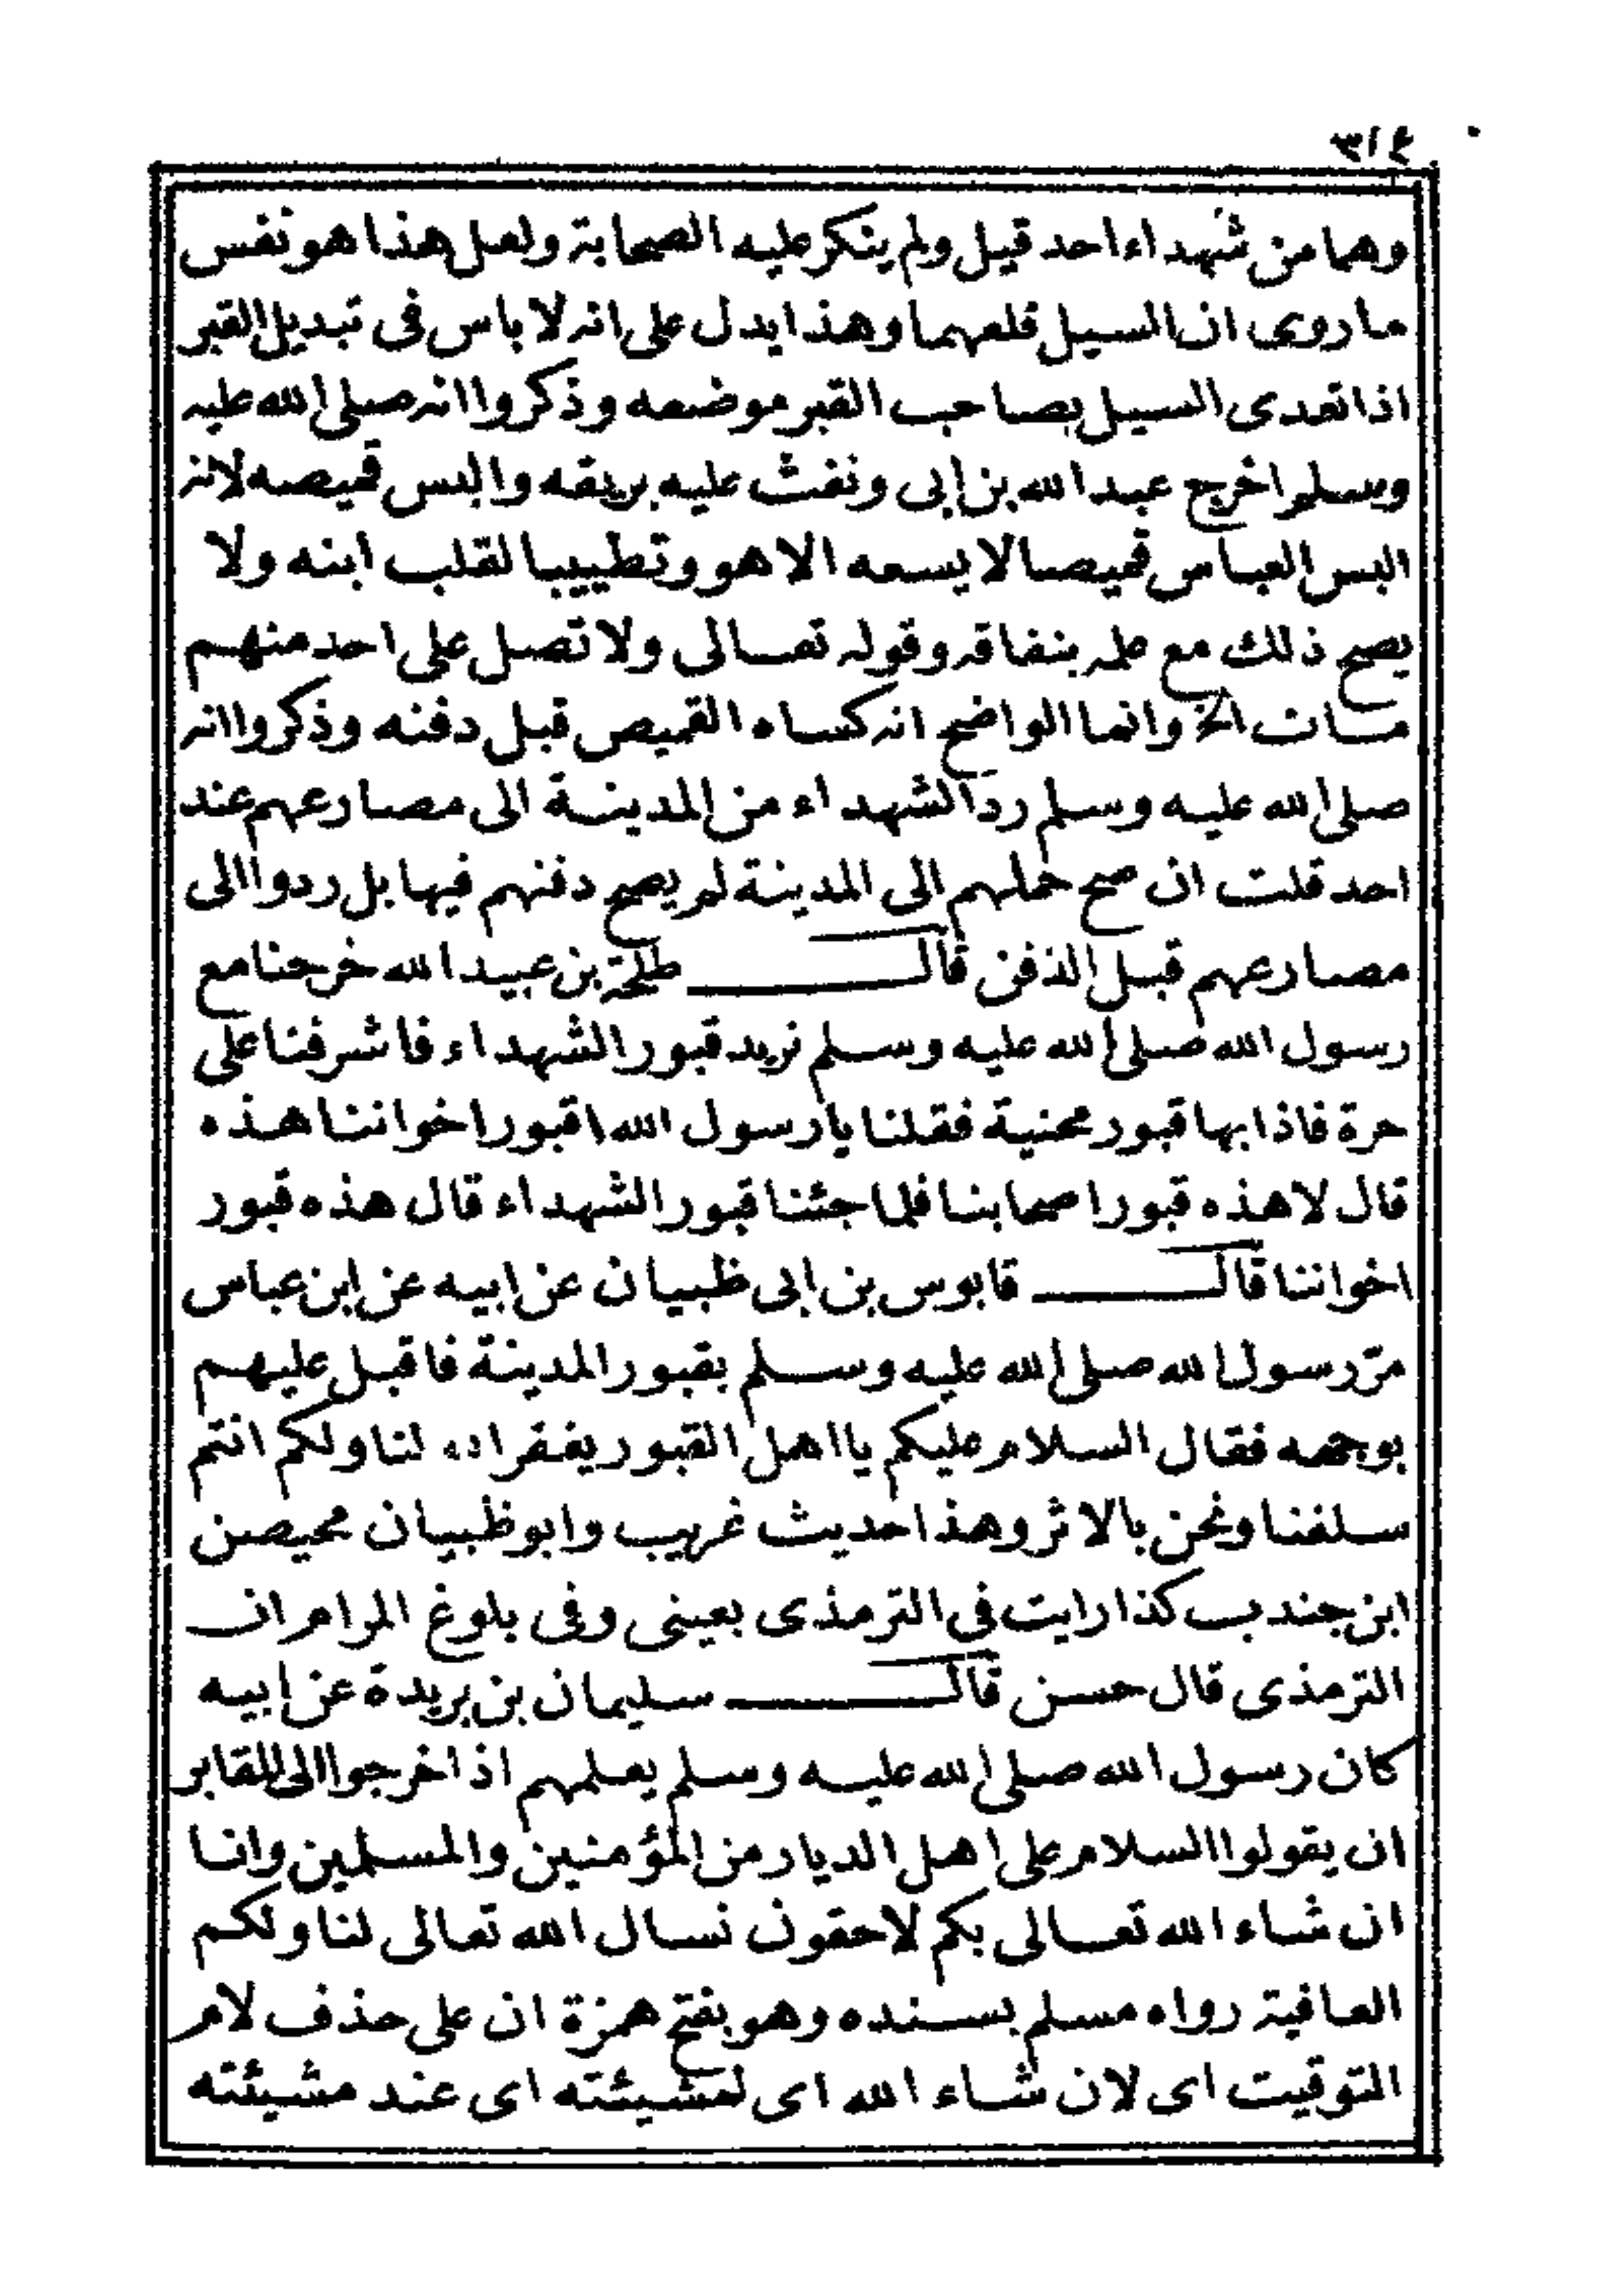 ٣١٤
وهما من شهداء احد قيل ولم ينكر عليه الصحابة ولعل هذا هو نفس
ما روى ان السيل قلعهما وهذا يدل على انه لا باس فى تبديل القبر
اذا تعدى السيل بصاحب القبر موضعه وذكروا انه صلى الله عليه
وسلم اخرج عبد الله بن ابى ونفث عليه بريقه والبس قميصه لانه
البس العباس قميصا لا يسعه الا هو وتطييبا لقلب ابنه ولا
يصح ذلك مع علمه بنفاقه وقوله تعالى ولا تصل على احد منهم
مات الخ وانما الواضح انه كساه القميص قبل دفنه وذكروا انه
صلى الله عليه وسلم رد الشهداء من المدينة الى مصارعهم عند
احد قلت ان صح حملهم الى المدينة لم يصح دفنهم فيها بل ردوا الى
مصارعهم قبل الدفن قال طلحة بن عبيد الله خرجنا مع
رسول الله صلى الله عليه وسلم نريد قبور الشهداء فاشرفنا على
حرة فاذا بها قبور محنية فقلنا يا رسول الله اقبور اخواننا هذه
قال لا هذه قبور اصحابنا فلما جئنا قبور الشهداء قال هذه قبور
اخواننا قال قابوس بن ابى ظبيان عن ابيه عن ابن عباس
مرّ رسول الله صلى الله عليه وسلم بقبور المدينة فاقبل عليهم
بوجهه فقال السلام عليكم يا اهل القبور يغفر الله لنا ولكم انتم
سلفنا ونحن بالاثر وهذا حديث غريب وابو ظبيان محيصن
ابن جندب كذا رايت فى الترمذى بعينى وفى بلوغ المرام ان
الترمذى قال حسن قال سليمان بن بريدة عن ابيه
كان رسول الله صلى الله عليه وسلم يعلمهم اذا خرجوا الى المقابر
ان يقولوا السلام على اهل الديار من المؤمنين والمسلمين وانا
ان شاء الله تعالى بكم لاحقون نسال الله تعالى لنا ولكم
العافية رواه مسلم بسنده وهو بفتح همزة ان على حذف لام
التوقيت اى لان شاء الله اى لمشيئته اى عند مشيئته